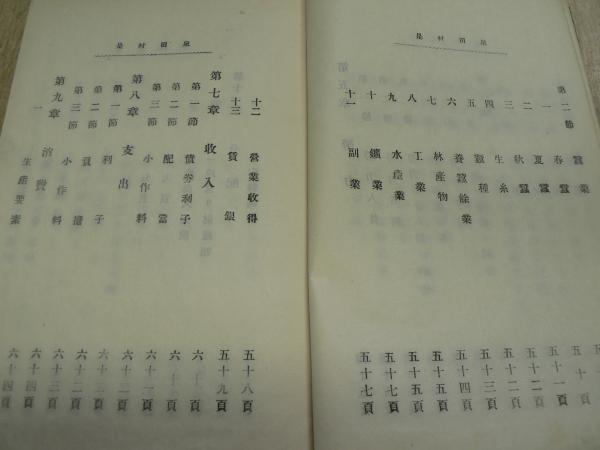 泉田村是
第二節 蠶業 五十頁
一 春蠶 五十頁
二 夏蠶 五十一頁
三 秋蠶 五十二頁
四 生糸 五十二頁
五 蠶種 五十三頁
六 養蠶餘業 五十四頁
七 林産物 五十五頁
八 工業 五十五頁
九 水産業 五十七頁
十 鑛業 五十七頁
十一 副業
泉田村是
十二 營業收得 五十八頁
十三 賃銀 五十九頁
第七章 收入 六十頁
第一節 債券利子 六十頁
第二節 配當 六十一頁
第三節 小作料
第八章 支出 六十二頁
第一節 利子 六十二頁
第二節 負擔
第三節 小作料 六十三頁
第九章 消費 六十四頁
一 生産要素 六十四頁